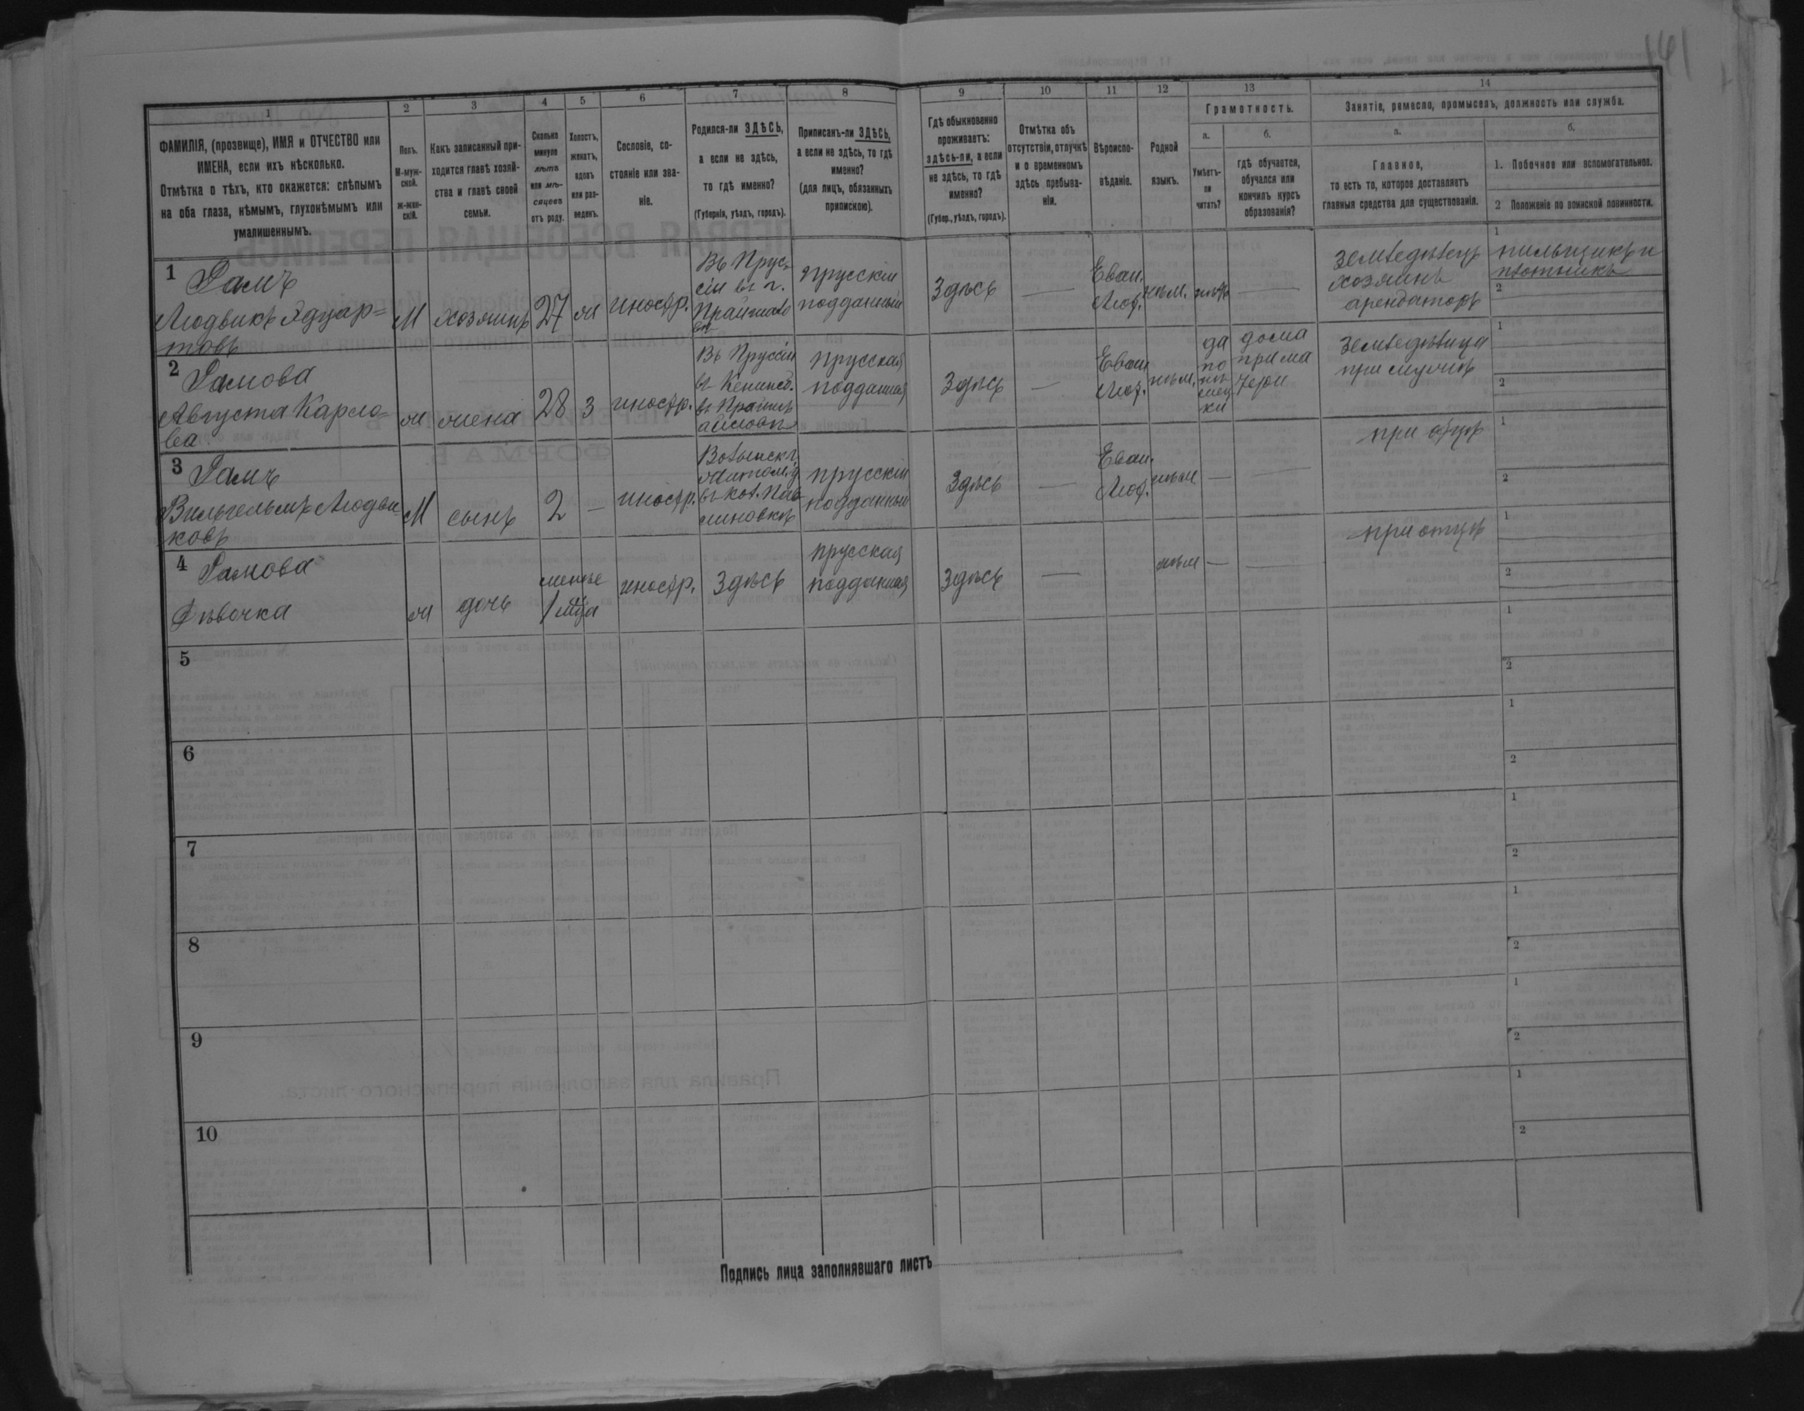 161
1
2
3
4
5
6
7
8
9
10
11
12
13
14
ФАМИЛІЯ, (прозвище), ИМЯ и ОТЧЕСТВО или
ИМЕНА, если ихъ нѣсколько.
Отмѣтка о тѣхъ, кто окажется: слѣпымъ
на оба глаза, нѣмымъ, глухонѣмымъ или
умалишеннымъ.
Полъ.
М-муж-
ской.
Ж-жен-
скій.
Какъ записанный при-
ходится главѣ хозяй-
ства и главѣ своей
семьи.
Сколько
минуло
лѣтъ
или мѣ-
сяцевъ
отъ роду.
Холостъ,
женатъ,
вдовъ
или раз-
веденъ.
Сословіе, со-
стояніе или зва-
ніе.
Родился-ли ЗДѢСЬ,
а если не здѣсь,
то гдѣ именно?
(Губернія, уѣздъ, городъ).
Приписанъ-ли ЗДѢСЬ,
а если не здѣсь, то гдѣ
именно?
(для лицъ, обязанныхъ
припискою).
Гдѣ обыкновенно
проживаетъ:
здѣсь-ли, а если
не здѣсь, то гдѣ
именно?
(Губер., уѣздъ, городъ).
Отмѣтка объ
отсутствіи, отлучкѣ
и о временномъ
здѣсь пребыва-
ніи.
Вѣроиспо-
вѣданіе.
Родной
языкъ.
Грамотность.
а.
Умѣетъ-
ли
читать?
б.
гдѣ обучается,
обучался или
кончилъ курсъ
образованія?
Занятіе, ремесло, промыселъ, должность или служба.
а.
Главное,
то есть то, которое доставляетъ
главныя средства для существованія.
б.
1. Побочное или вспомогательное.
2 Положеніе по воинской повинности.
1
Гамъ
Людвикъ Эдуар=
товъ
М
хозяинъ
27
ж
иностр.
Въ Прус-
сіи въ г.
прусскій
подданный
Здѣсь
—
Еван.
Лют.
нѣм.
нѣтъ
—
земледѣлецъ
хозяинъ
арендаторъ
1
пильщикъ и
плотникъ
2
2
Гамова
Августа Карло=
ва
ж
жена
28
З
иностр.
Въ Пруссіи
прусская
подданная
Здѣсь
—
Еван.
Лют.
нѣм.
да
по
нѣ
мец
ки
дома
при ма
тери
земледѣлица
при мужѣ
1
2
3
Гамъ
Вильгельмъ Людви
ковъ
М
сынъ
2
—
иностр.
Волынск. г.
въ кол.
прусскій
подданный
Здѣсь
—
Еван.
Лют.
нѣм
—
—
при отцѣ
1
2
4
Гамова
Дѣвочка
ж
дочь
менѣе
1 мѣс
иностр.
Здѣсь
прусская
подданная
Здѣсь
—
нѣм
—
—
при отцѣ
1
2
5
1
2
6
1
2
7
1
2
8
1
2
9
1
2
10
1
2
Подпись лица заполнявшаго листъ